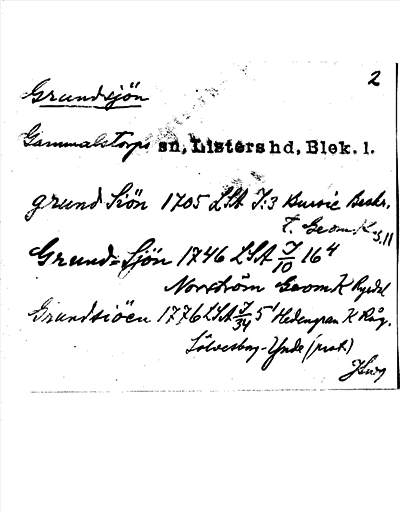 2
Grundsjön
Gammalstorps sn, Listers hd, Blek. l.
grund Siön 1705 LSA I:3 Burvie Beskr.
t. Geom K s. 11
Grund-Sjön 1746 LSA I/10 16⁴
Norström Geom K
Grundsiöen 1776 LSA I/34 5¹ K Råg.
Sölvesborg-Ynde (prot.)